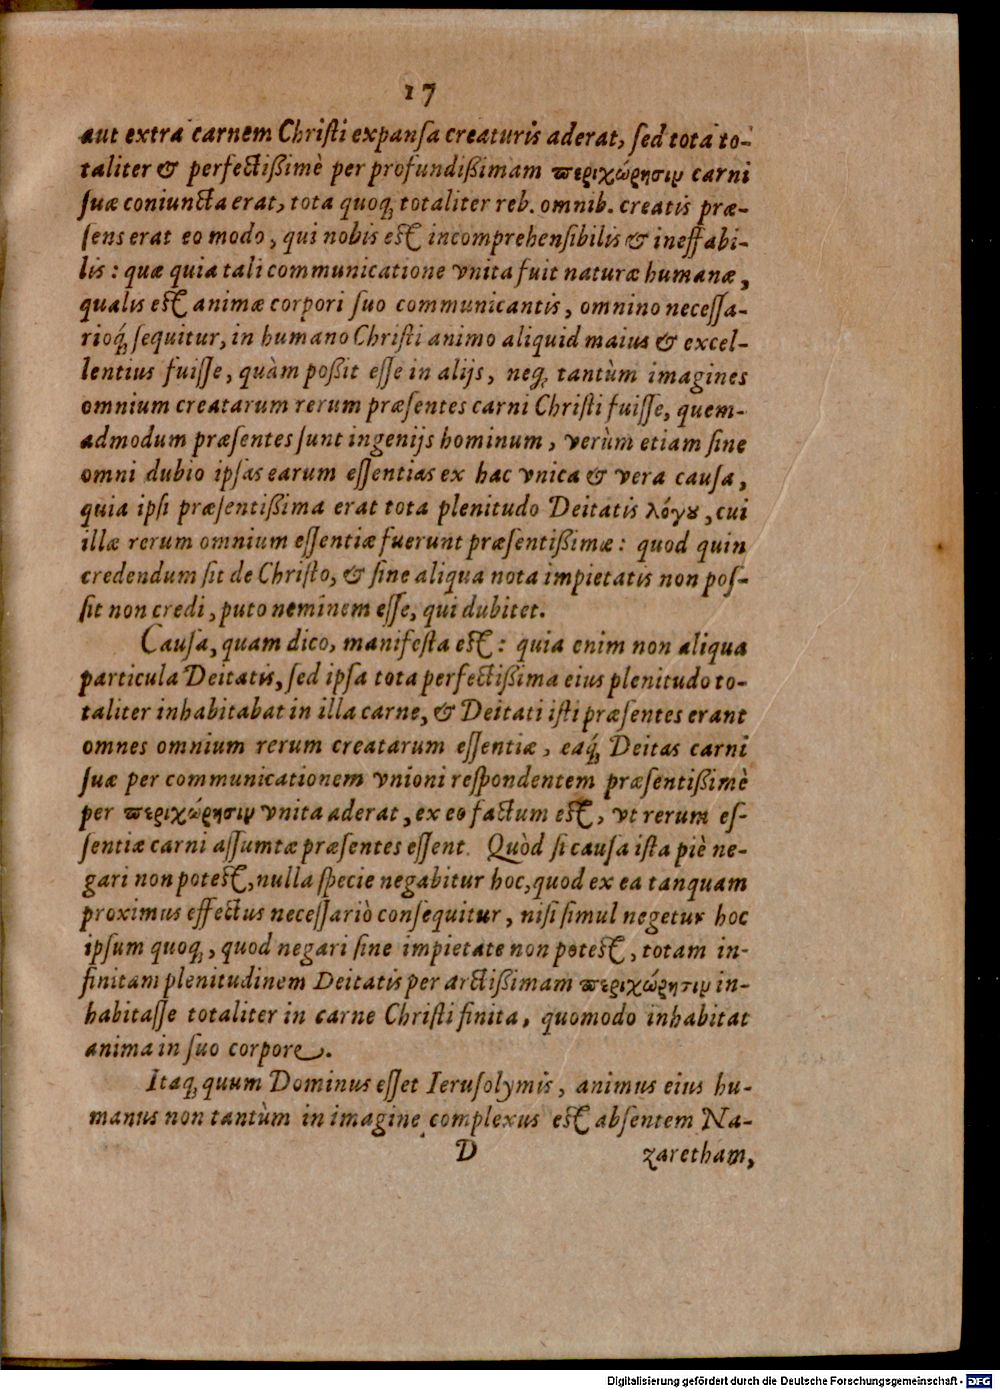 17
aut extra carnem Chriſti expanſa creaturis aderat, ſed tota to-
taliter & perfectißimè per profundißimam περιχώρησιν carni
ſuæ coniuncta erat, tota quoq; totaliter reb. omnib. creatis præ-
ſens erat eo modo, qui nobis eſt incomprehenſibilis & ineffabi-
lis: quæ quia tali communicatione vnita fuit naturæ humanæ,
qualis eſt animæ corpori ſuo communicantis, omnino neceſſa-
rioq́; ſequitur, in humano Chriſti animo aliquid maius & excel-
lentius fuiſſe, quàm poßit eſſe in alijs, neq; tantùm imagines
omnium creatarum rerum præſentes carni Chriſti fuiſſe, quem-
admodum præſentes ſunt ingenijs hominum, verùm etiam ſine
omni dubio ipſas earum eſſentias ex hac vnica & vera cauſa,
quia ipſi præſentißima erat tota plenitudo Deitatis λόγȣ, cui
illæ rerum omnium eſſentiæ fuerunt præſentißimæ: quod quin
credendum ſit de Chriſto, & ſine aliqua nota impietatis non poſ-
ſit non credi, puto neminem eſſe, qui dubitet.
Cauſa, quam dico, manifeſta eſt: quia enim non aliqua
particula Deitatis, ſed ipſa tota perfectißima eius plenitudo to-
taliter inhabitabat in illa carne, & Deitati iſti præſentes erant
omnes omnium rerum creatarum eſſentiæ, eaq́; Deitas carni
ſuæ per communicationem vnioni reſpondentem præſentißimè
per περιχώρησιν vnita aderat, ex eo factum eſt, vt rerum eſ-
ſentiæ carni aſſumtæ præſentes eſſent. Quòd ſi cauſa iſta piè ne-
gari non poteſt, nulla ſpecie negabitur hoc, quod ex ea tanquam
proximus effectus neceſſariò conſequitur, niſi ſimul negetur hoc
ipſum quoq;, quod negari ſine impietate non poteſt, totam in-
finitam plenitudinem Deitatis per arctißimam περιχώρησιν in-
habitaſſe totaliter in carne Chriſti finita, quomodo inhabitat
anima in ſuo corpore.
Itaq; quum Dominus eſſet Ieruſolymis, animus eius hu-
manus non tantùm in imagine complexus eſt abſentem Na-
D zaretham,
Digitalisierung gefördert durch die Deutsche Forschungsgemeinschaft - DFG